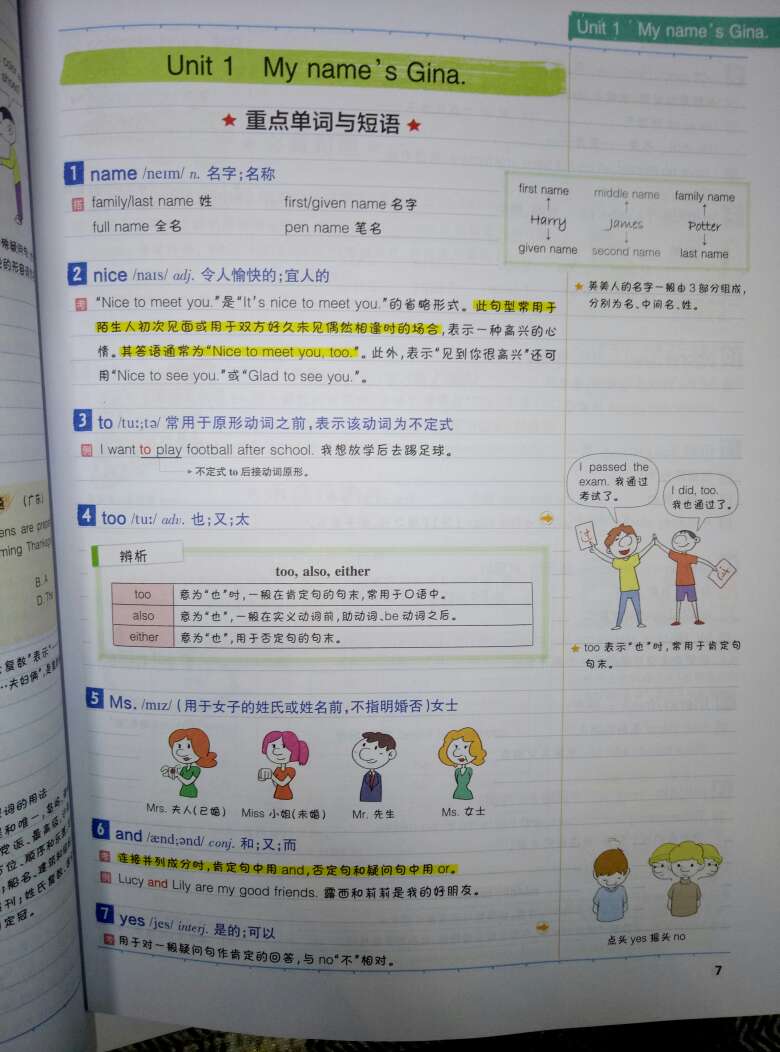 Unit 1 My name's Gina.
Unit 1 My name's Gina.
★ 重点单词与短语 ★
1 name /neɪm/ n. 名字;名称
搭 family/last name 姓 first/given name 名字
full name 全名 pen name 笔名
first name middle name family name
Harry James Potter
given name second name last name
★ 英美人的名字一般由3部分组成,
分别为名、中间名、姓。
2 nice /naɪs/ adj. 令人愉快的;宜人的
考 “Nice to meet you.”是“It's nice to meet you.”的省略形式。此句型常用于
陌生人初次见面或用于双方好久未见偶然相逢时的场合,表示一种高兴的心
情。其答语通常为“Nice to meet you, too.”。此外,表示“见到你很高兴”还可
用“Nice to see you.”或“Glad to see you.”。
3 to /tuː;tə/ 常用于原形动词之前,表示该动词为不定式
例 I want to play football after school. 我想放学后去踢足球。
不定式 to 后接动词原形。
4 too /tuː/ adv. 也;又;太
辨析
too, also, either
too 意为“也”时,一般在肯定句的句末,常用于口语中。
also 意为“也”,一般在实义动词前,助动词、be 动词之后。
either 意为“也”,用于否定句的句末。
I passed the
exam. 我通过
考试了。
I did, too.
我也通过了。
★ too 表示“也”时,常用于肯定句
句末。
5 Ms. /mɪz/ (用于女子的姓氏或姓名前,不指明婚否)女士
Mrs. 夫人(已婚) Miss 小姐(未婚) Mr. 先生 Ms. 女士
6 and /ænd;ənd/ conj. 和;又;而
考 连接并列成分时,肯定句中用 and,否定句和疑问句中用 or。
例 Lucy and Lily are my good friends. 露西和莉莉是我的好朋友。
7 yes /jes/ interj. 是的;可以
考 用于对一般疑问句作肯定的回答,与 no“不”相对。
点头 yes 摇头 no
7
(广东)
ens are
ming
B. A
D.
复数“表示
词的用法
和唯一,
方位、顺序和
;船名、建筑
报刊;姓氏复数
定冠。